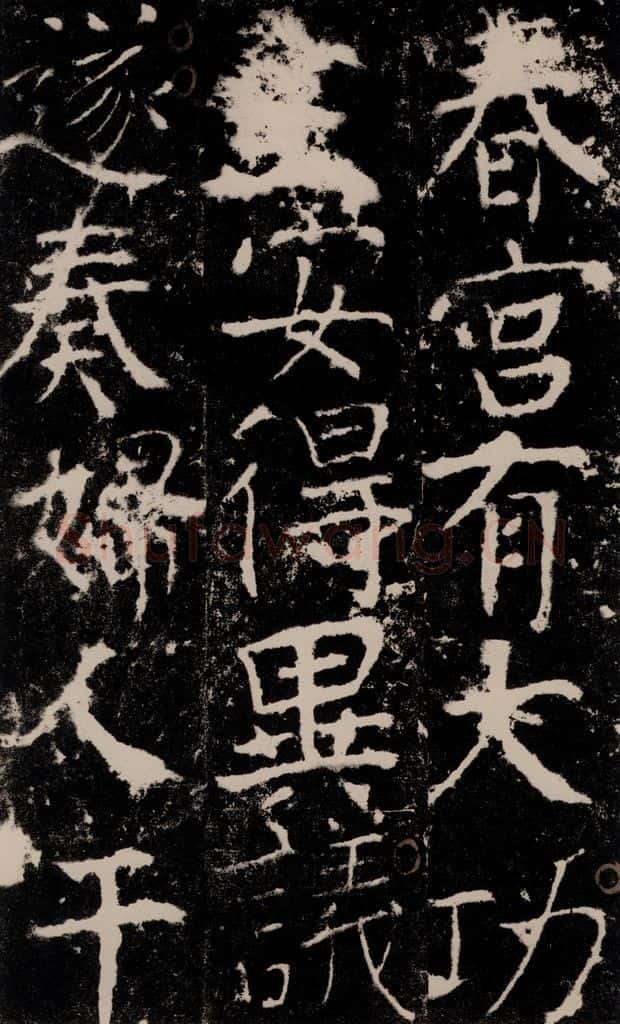 春宮有大功
主安得異議
遂奏婦人干
Shufawang.CN